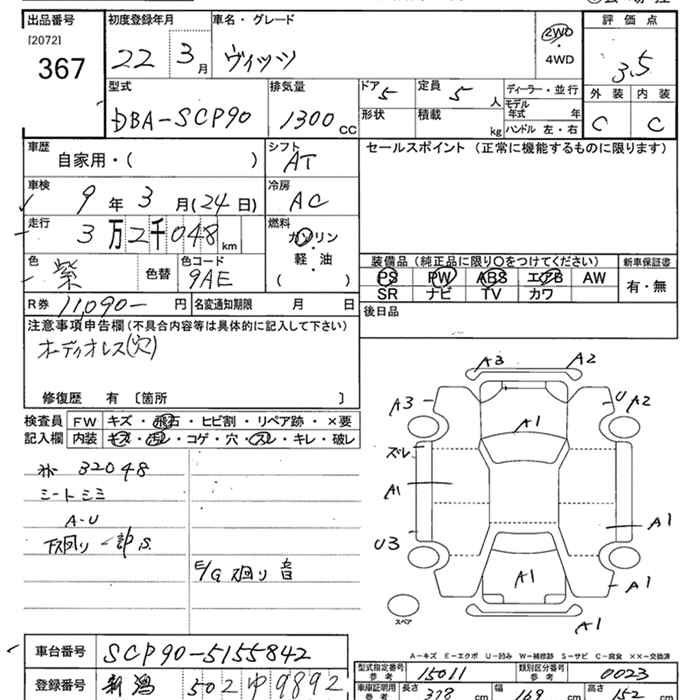 出品番号 初度登録年月 車名・グレード 評価点
[2072]
367 22 3月 ヴィッツ 2WD・4WD 3.5
型式 排気量 ドア 5 定員 5人 ディーラー・並行 外装 内装
DBA-SCP90 1300 CC 形状 積載 kg モデル年式 年 C C
ハンドル 左・右
車歴 シフト セールスポイント (正常に機能するものに限ります)
自家用・( ) AT
車検 冷房
9年 3月(24日) AC
走行 燃料
3万2千048km ガソリン・軽油
( )
色 色替 色コード 装備品 (純正品に限り○をつけてください) 新車保証書
紫 9AE PS PW ABS エアB AW 有・無
SR ナビ TV カワ
R券 11,090- 円 名変通知期限 月 日 後日品
注意事項申告欄(不具合内容等は具体的に記入して下さい)
オーディオレス(穴)
修復歴 有 〔箇所 〕
検査員 FW キズ・飛石・ヒビ割・リペア跡・×要
記入欄 内装 キズ・汚レ・コゲ・穴・スレ・キレ・破レ
32048
シートシミ
A-U
下廻り一部S.
E/G廻り音
A3 A2
A3 U A2
A1
ズレ
A1
A1
U3
A1
A1
A1
スペア
A-キズ E-エクボ U-凹み W-補修跡 S-サビ C-腐食 ××-交換済
車台番号 SCP90-5155842
登録番号 新潟 502 ゆ 9892
型式指定番号 参考 15011 類別区分番号 参考 0023
車庫証明用 参考 長さ 378 cm 幅 169 cm 高さ 152 cm